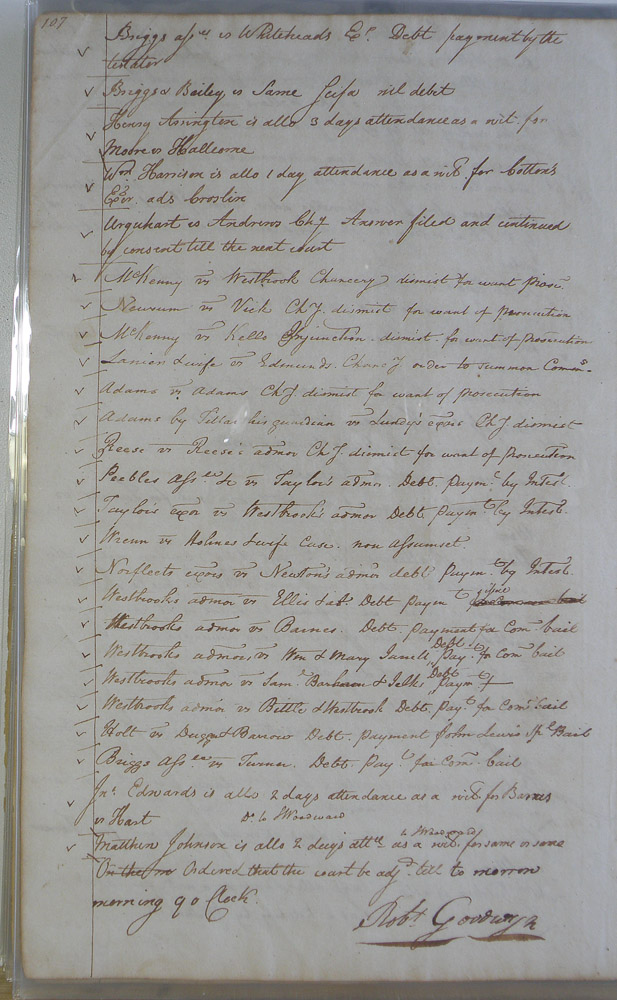 107
Briggs ass.ee vs Whiteheads Ex.r Debt payment by the
testator
Briggs & Bailey vs Same Scifa nil debit
Henry Arrington is allo 3 days attendance as a wit. for
Moore vs Hallcome
Wm. Harrison is allo 1 day attendance as a wit. for Cotton's
Exor. ads Croslin
Urquhart vs Andrews ChY Answer filed and continued
by consent till the next court
McKenny vs Westbrook Chancery dismist for want Prosn.
Newsum vs Vick ChY. dismist for want of prosecution
McKenny vs Kello Injunction. dismist for want of prosecution
Lanier & wife vs Edmunds. ChancY order to summon Comrs.
Adams vs Adams ChY dismist for want of prosecution
Adams by his guardian vs Lundy's exors ChY dismist
Reese vs Reese's admor ChY. dismist for want of prosecution
Peebles Ass.ee &c vs Taylor's admor. Debt. Paymt. by Intest.
Taylor's exor vs Westbrook's admor Debt paymt. by Intest.
Wrenn vs Holmes & wife Case. non assumset.
Norfleets exors vs Newton's admor debt paymt. by Intest.
Westbrooks admor vs Ellis & als. Debt Paymt
Westbrooks admor vs Barnes. Debt. Payment for Com. bail
Debt
Westbrooks admors vs Wm & Mary Pay.t for Com. bail
Debt
Westbrooks admor vs Saml. Barham & paymt
Westbrooks admor vs Bittle & Westbrook Debt. Pay.t for Com. bail
Holt vs & Barrow Debt. payment John Lewis Spl. Bail
Briggs Ass.ee vs Turner. Debt. Pay.t for Com. bail
Jno. Edwards is allo 2 days attendance as a wit. for Barnes
vs Hart Do. vs Woodward
vs Woodward
Matthew Johnson is allo 2 days attce as a wit. for same vs same
On the mo Ordered that the court be adjd. till to morrow
morning 9 o Clock.
Robt. Goodwyn